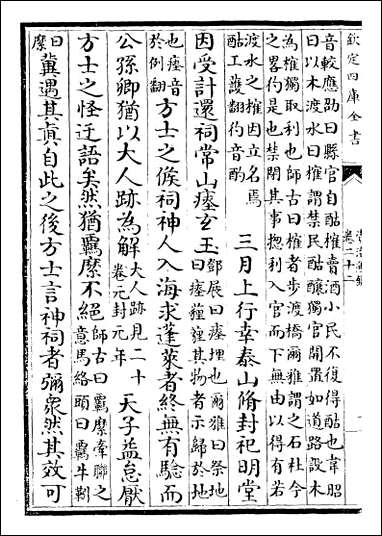 欽定四庫全書
資治通鑑
卷二十二
音較應劭曰縣官自酤榷賣酒小民不復得酤也韋昭
曰以木渡水曰榷謂禁民酤釀獨官開置如道路設木
為榷獨取利也師古曰榷者步渡橋爾雅謂之石杜今
之畧彴是也禁閉其事揔利入官而下無由以得有若
渡水之榷因立名焉
酤工護翻彴音酌
三月上行幸泰山脩封祀明堂
因受計還祠常山瘞玄玉
鄧展曰瘞埋也爾雅曰祭地
曰瘞薶薶其物者示歸於地
也瘞音
於例翻
方士之候祠神人入海求蓬萊者終無有驗而
公孫卿猶以大人跡為解
大人跡見二十
卷元封元年
天子益怠厭
方士之怪迂語矣然猶羈縻不絶
師古曰羈縻牽聯之
意馬絡頭曰羈牛靷
曰
縻
冀遇其眞自此之後方士言神祠者彌衆然其效可